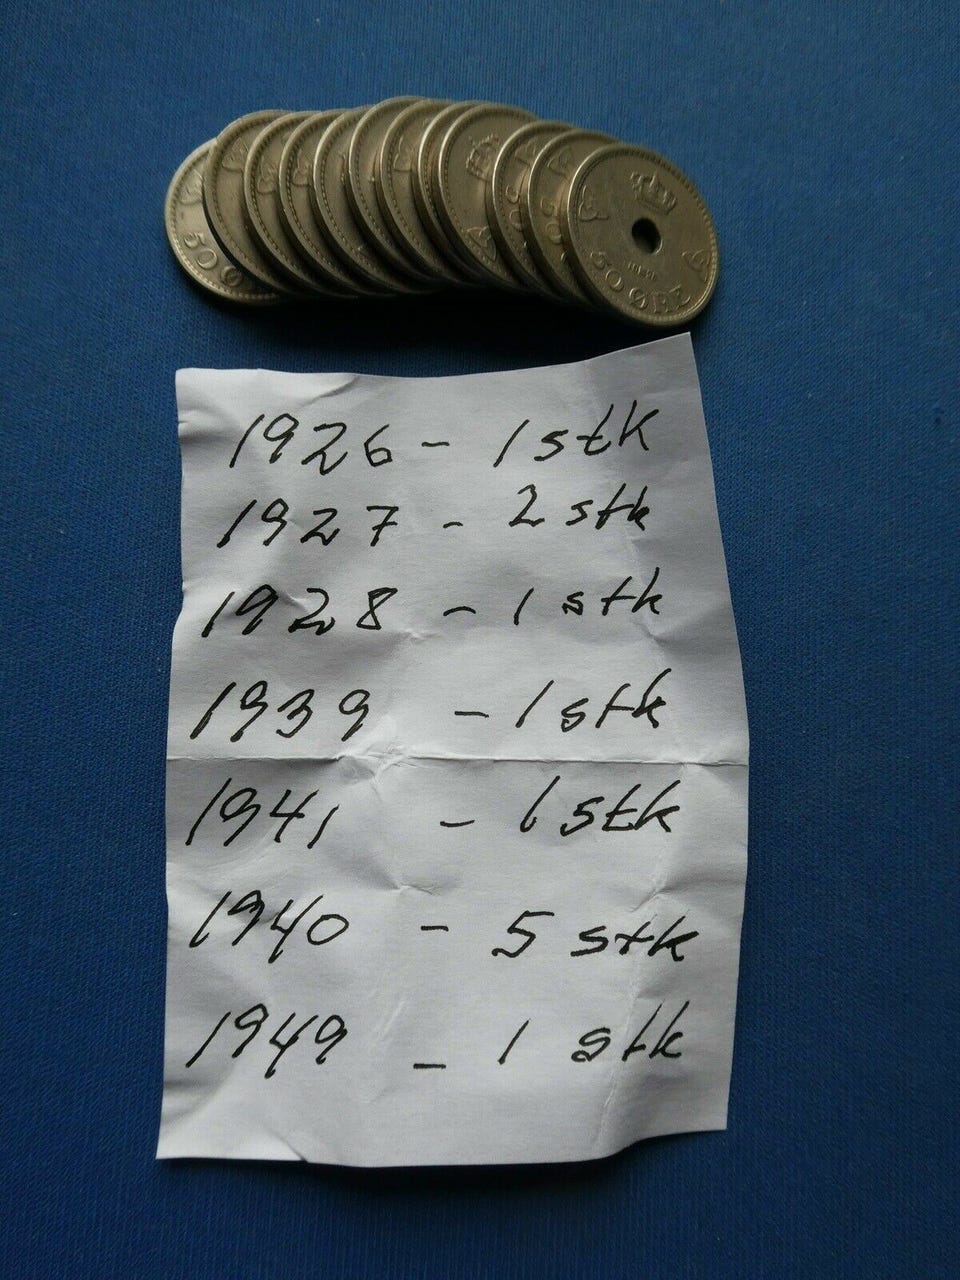 50 Ø
50
50
50 ØRE
1926 - 1 stk
1927 - 2 stk
1928 - 1 stk
1939 - 1 stk
1941 - 1 stk
1940 - 5 stk
1949 - 1 stk